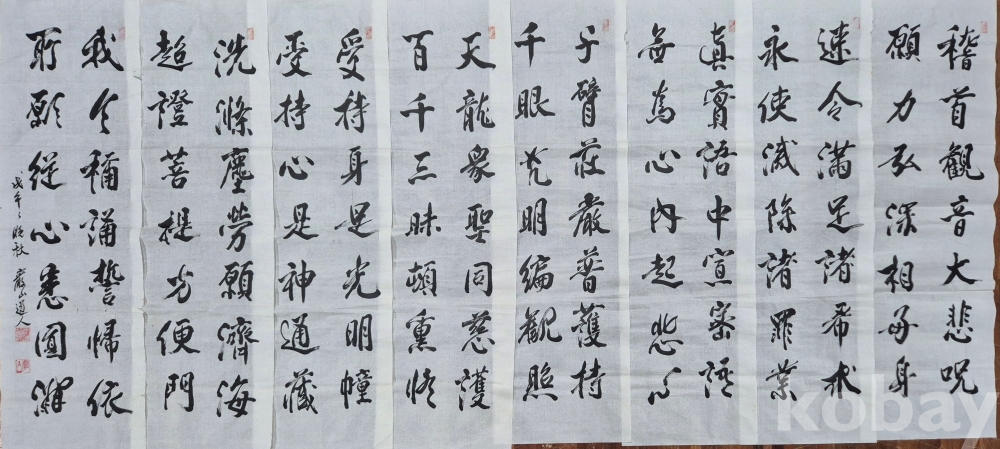 稽首觀音大悲呪
願力弘深相好身
速令滿足諸希求
永使滅除諸罪業
眞實語中宣密語
無爲心內起悲心
千臂莊嚴普護持
千眼光明編觀照
天龍衆聖同慈護
百千三昧頓熏修
受持身是光明幢
受持心是神通藏
洗滌塵勞願濟海
超證菩提方便門
我今稱誦誓歸依
所願從心悉圓滿
戊午 秋 山道人
kobay